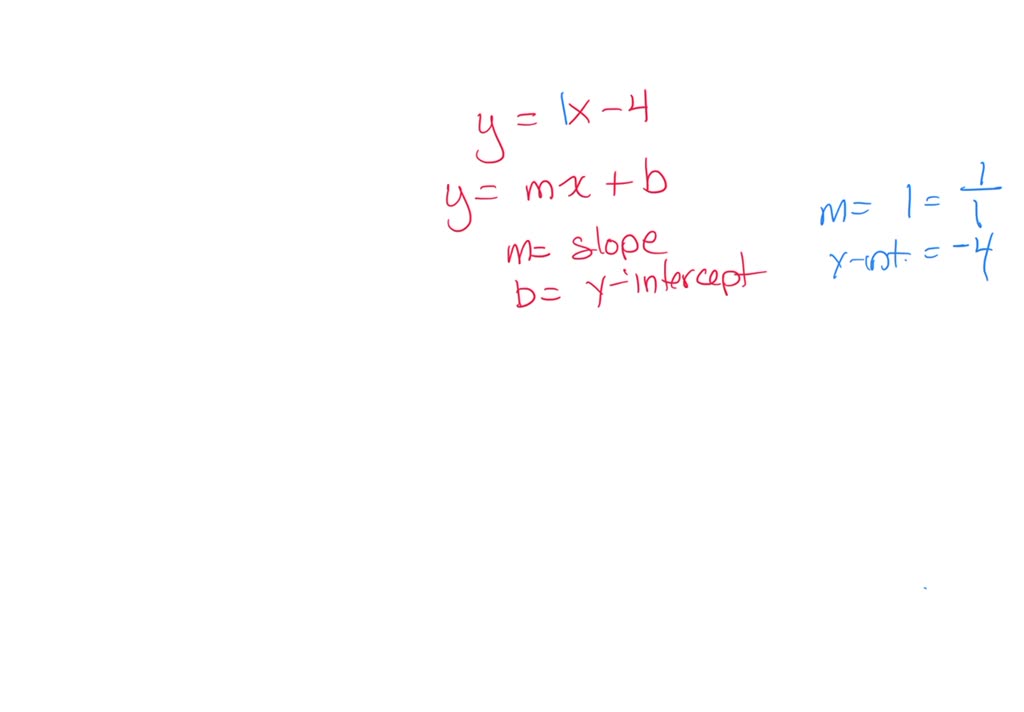 y = 1x - 4
y = mx + b
m = slope
b = y-intercept
m = 1 = 1/1
y-int. = -4